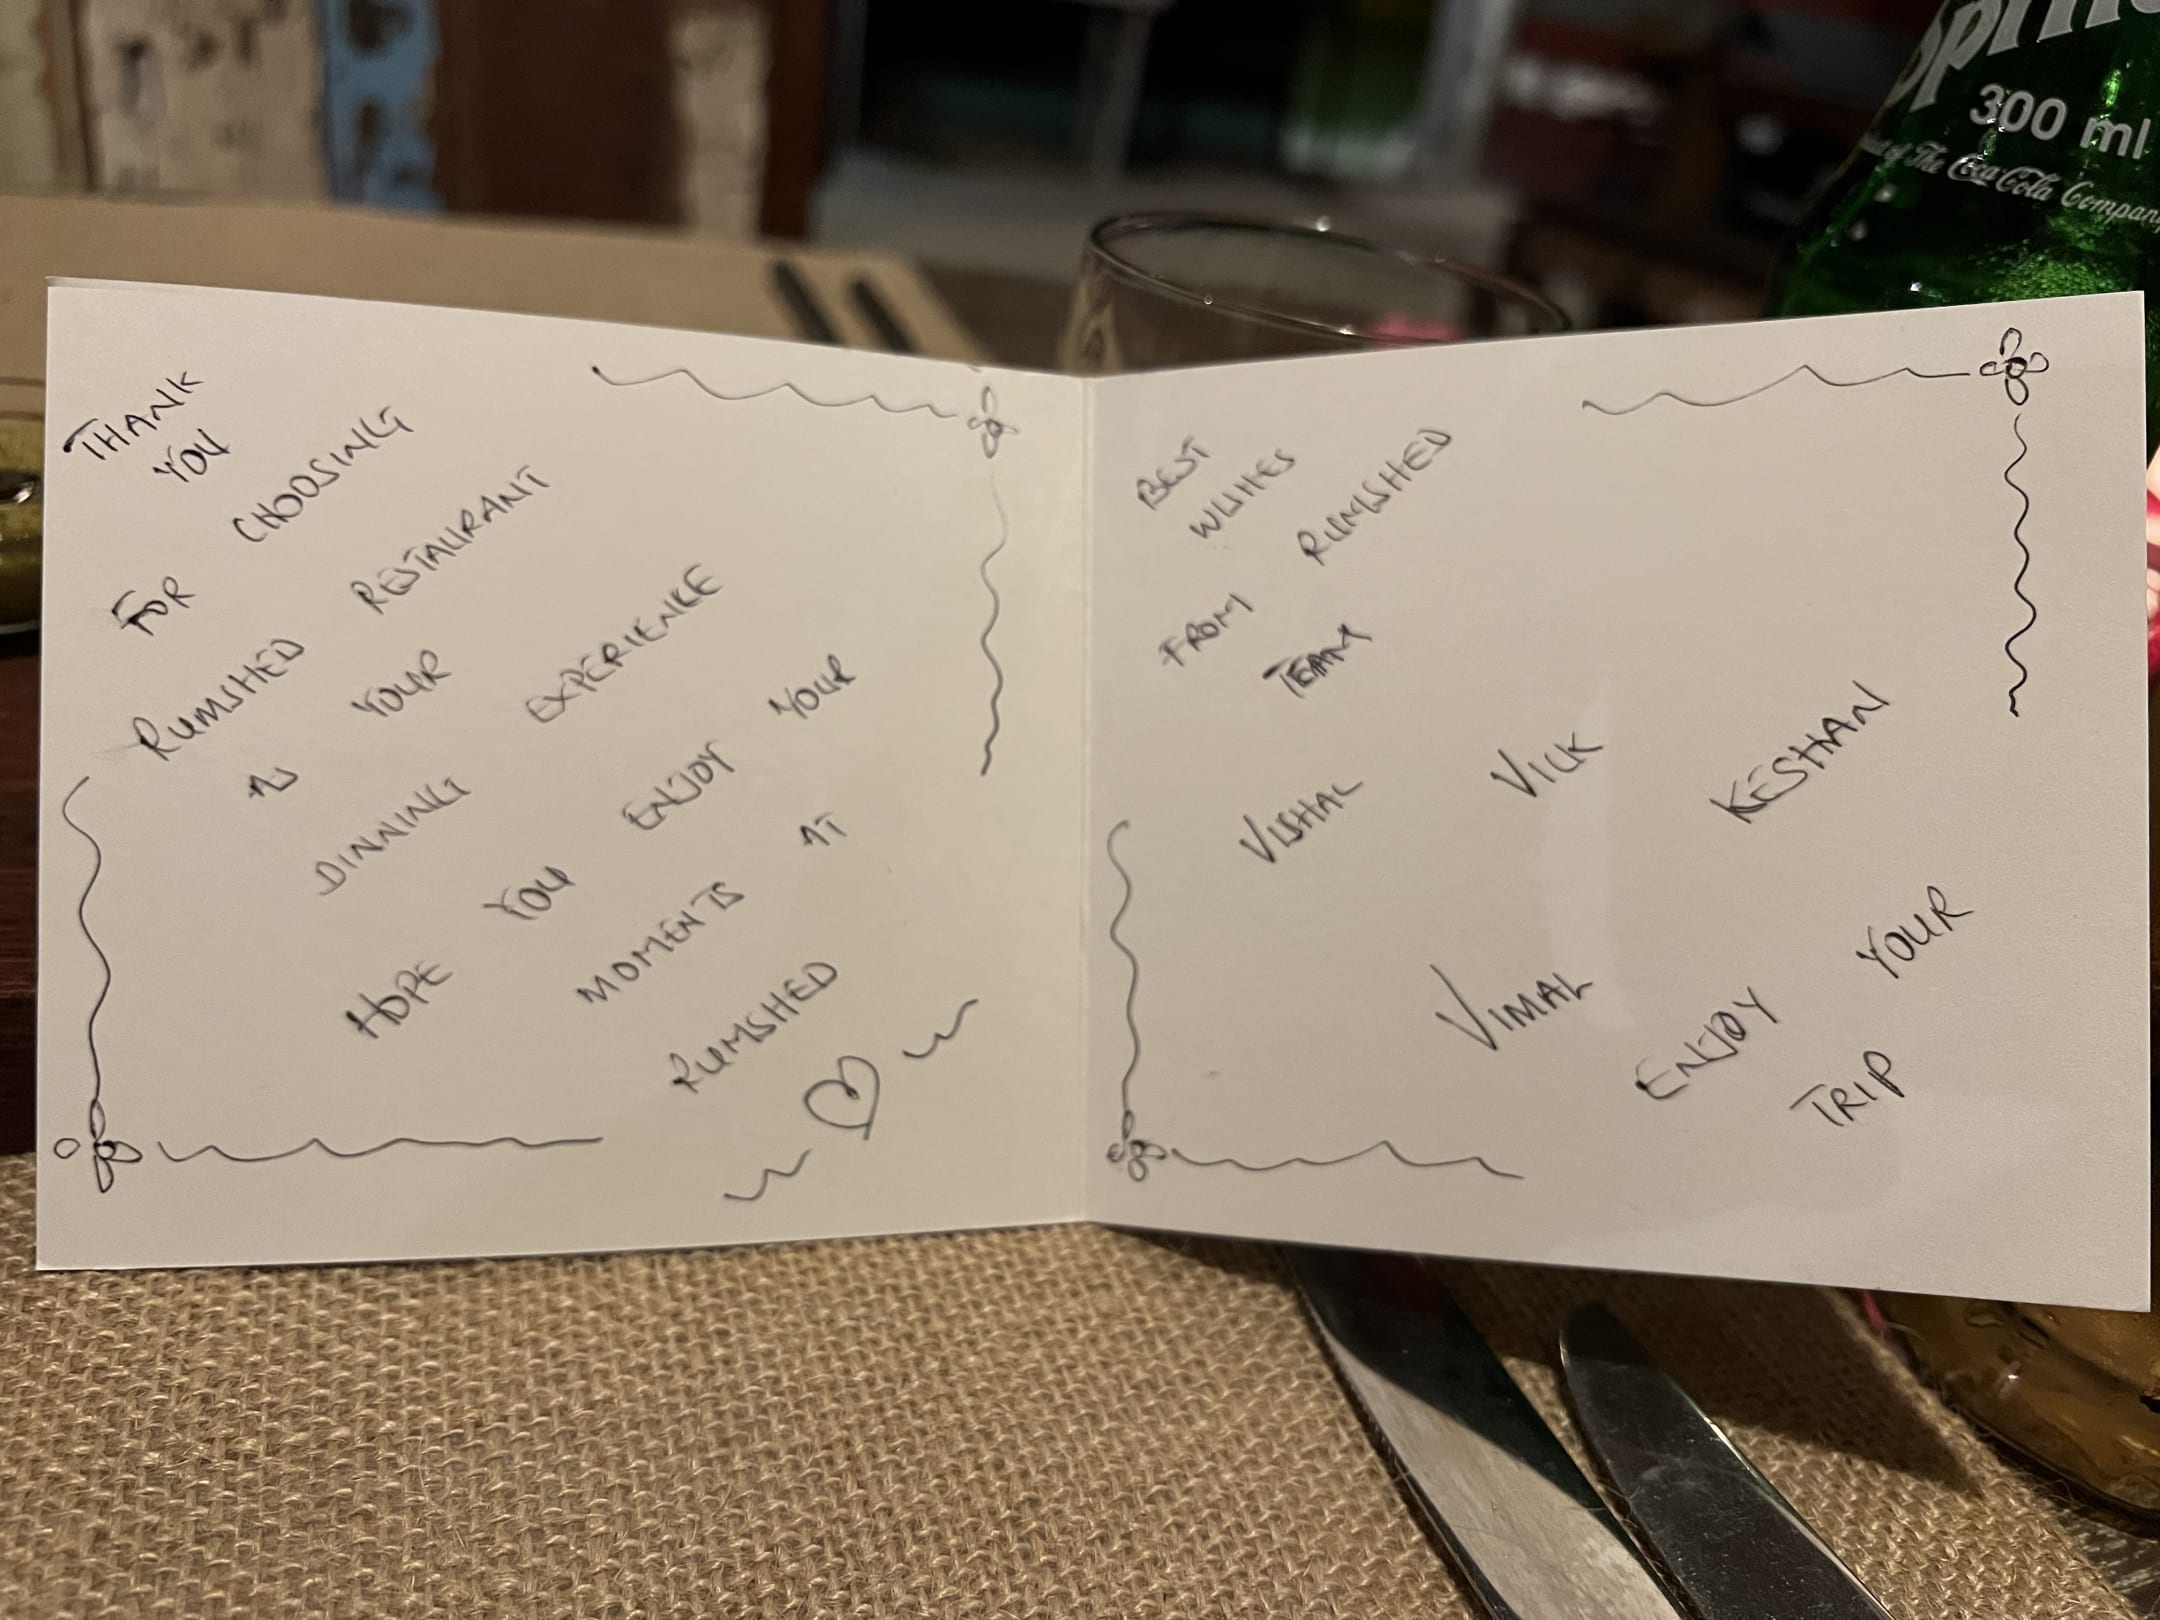 THANK
YOU
FOR CHOOSING
RUMSHED RESTAURANT
AS YOUR
DINNING EXPERIENCE
HOPE YOU ENJOY YOUR
MOMENTS AT
RUMSHED
BEST
WISHES
FROM RUMSHED
TEAM
VISHAL VICK KESHAN
VIMAL
ENJOY YOUR
TRIP
300 ml
The Coca-Cola Company